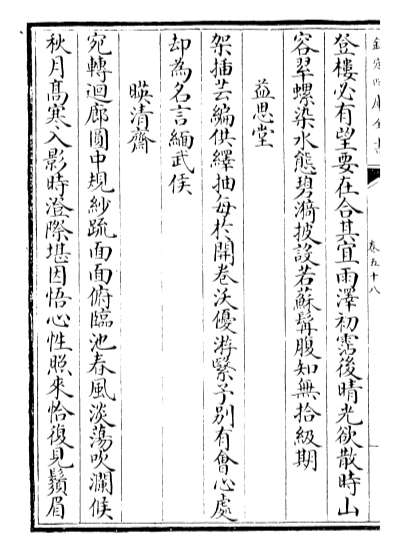 欽定四庫全書
卷五十八
登樓必有望要在合其宜雨澤初霑後晴光欲散時山
容翠螺染水態碧漪披設若蘇髯腹知無拾級期
益思堂
架插芸編供繹抽每於開卷沃優游緊予別有會心處
却為名言緬武侯
暎清齋
宛轉迴廊圓中規紗疏面面俯臨池春風淡蕩吹瀾候
秋月髙寒入影時澄際堪因悟心性照來恰復見鬚眉